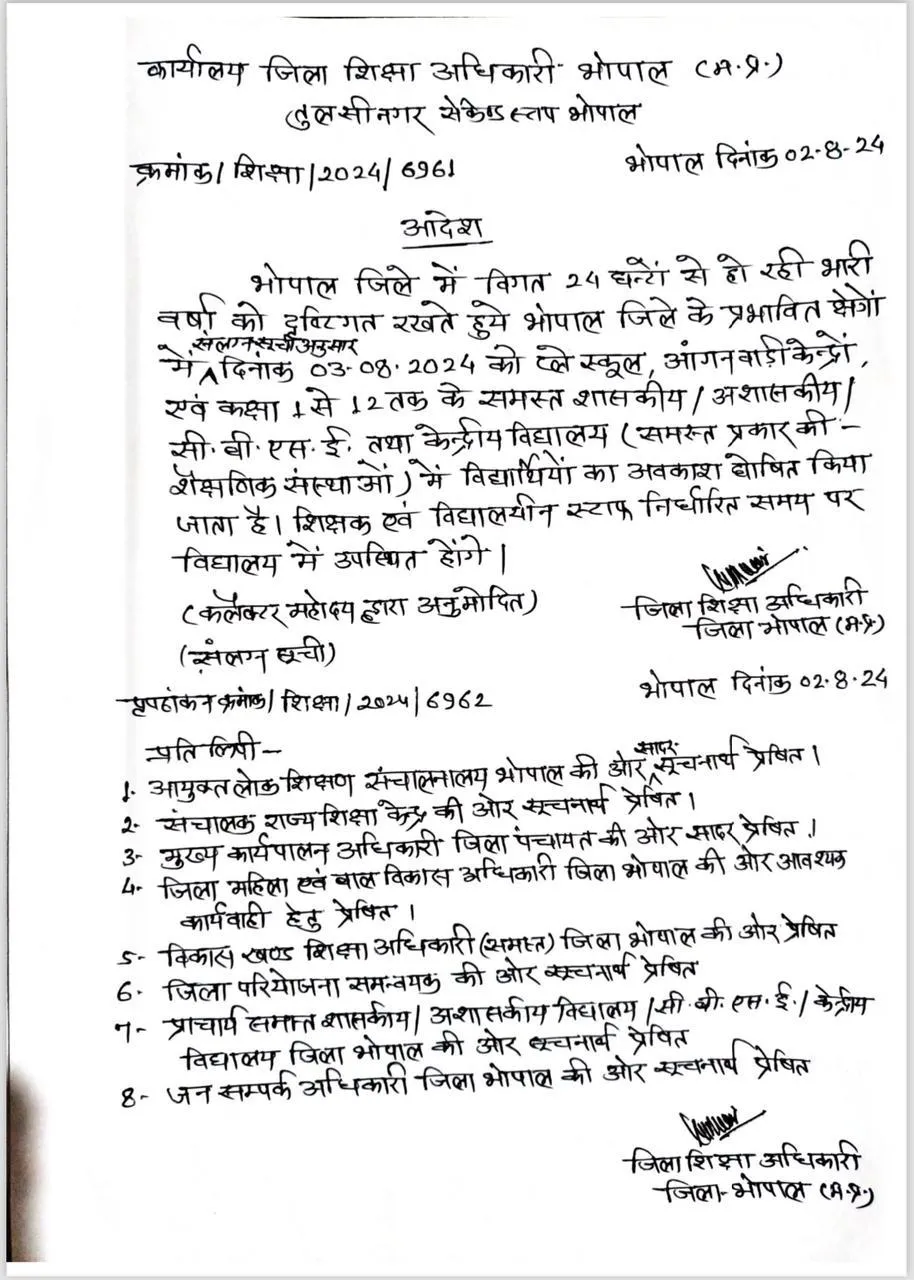 कार्यालय जिला शिक्षा अधिकारी भोपाल (म.प्र.)
तुलसीनगर सेकेण्ड स्टाप भोपाल
क्रमांक/शिक्षा/2024/6961
भोपाल दिनांक 02-8-24
आदेश
भोपाल जिले में विगत 24 घन्टों से हो रही भारी
वर्षा को दृष्टिगत रखते हुये भोपाल जिले के प्रभावित क्षेत्रों
संलग्न सूची अनुसार
में ^ दिनांक 03-08-2024 को प्ले स्कूल, आंगनवाड़ी केन्द्रों,
एवं कक्षा 1 से 12 तक के समस्त शासकीय/अशासकीय/
सी.बी.एस.ई. तथा केन्द्रीय विद्यालय (समस्त प्रकार की -
शैक्षणिक संस्थाओं) में विद्यार्थियों का अवकाश घोषित किया
जाता है। शिक्षक एवं विद्यालयीन स्टाफ निर्धारित समय पर
विद्यालय में उपस्थित होंगे।
(कलेक्टर महोदय द्वारा अनुमोदित)
जिला शिक्षा अधिकारी
जिला भोपाल (म.प्र.)
(संलग्न सूची)
पृष्ठांकन क्रमांक/शिक्षा/2024/6962
भोपाल दिनांक 02-8-24
प्रतिलिपी -
1- आयुक्त लोक शिक्षण संचालनालय भोपाल की ओर ^ सादर सूचनार्थ प्रेषित।
2- संचालक राज्य शिक्षा केन्द्र की ओर सूचनार्थ प्रेषित।
3- मुख्य कार्यपालन अधिकारी जिला पंचायत की ओर सादर प्रेषित।
4- जिला महिला एवं बाल विकास अधिकारी जिला भोपाल की ओर आवश्यक
कार्यवाही हेतु प्रेषित।
5- विकास खण्ड शिक्षा अधिकारी (समस्त) जिला भोपाल की ओर प्रेषित
6- जिला परियोजना समन्वयक की ओर सूचनार्थ प्रेषित
7- प्राचार्य समस्त शासकीय/अशासकीय विद्यालय/सी.बी.एस.ई./केन्द्रीय
विद्यालय जिला भोपाल की ओर सूचनार्थ प्रेषित
8- जन सम्पर्क अधिकारी जिला भोपाल की ओर सूचनार्थ प्रेषित
जिला शिक्षा अधिकारी
जिला-भोपाल (म.प्र.)